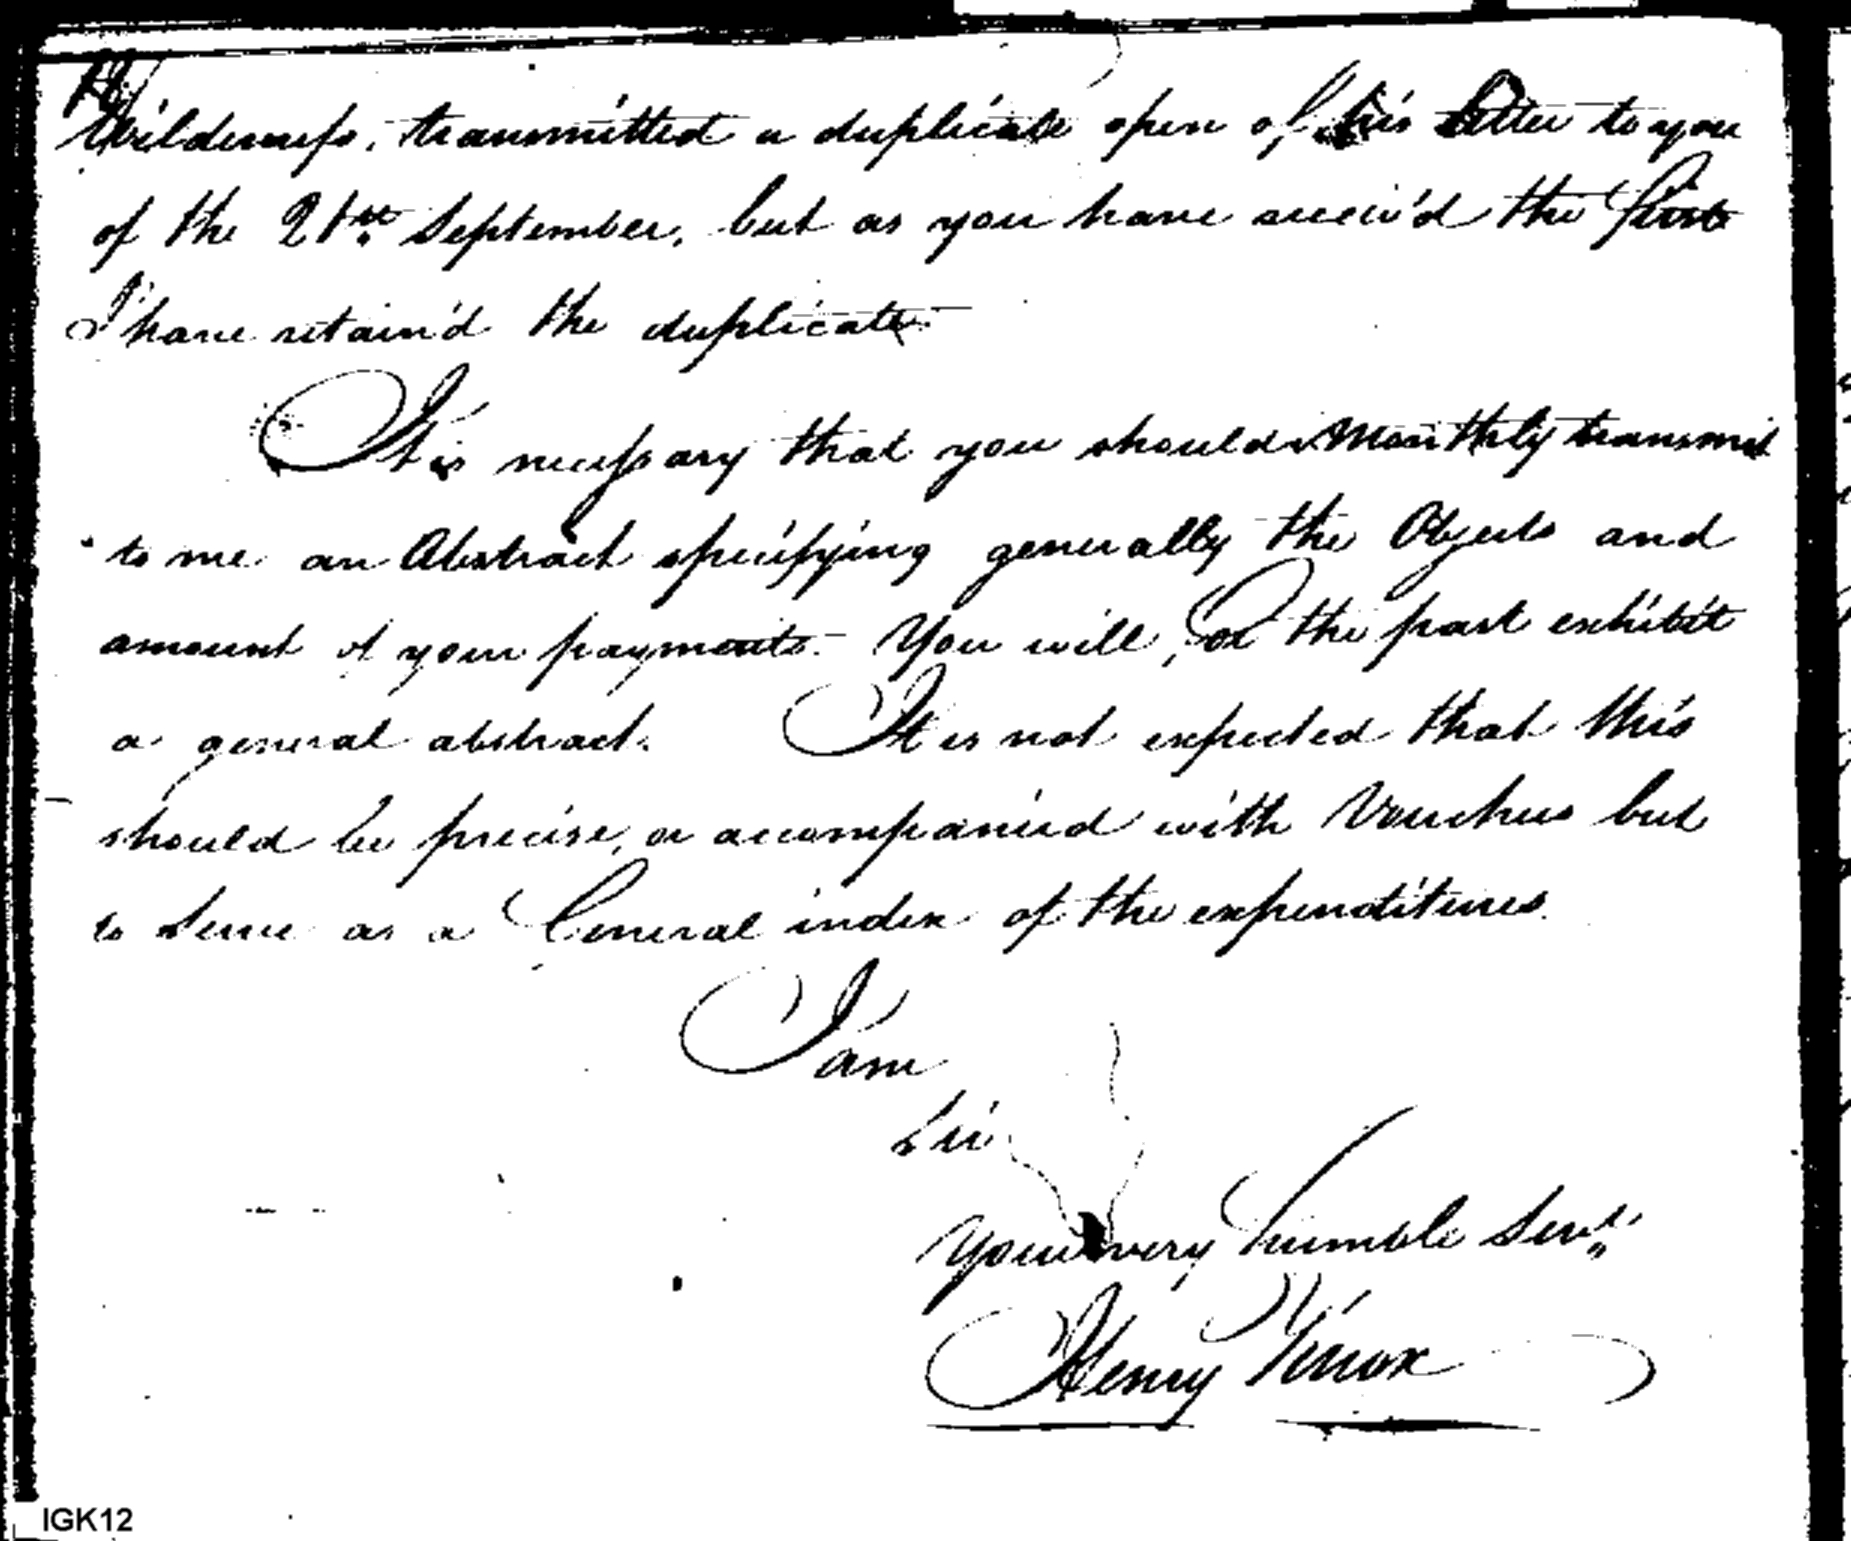 Wilderness, transmitted a duplicate open of his Letter to you
of the 21st September, but as you have receiv'd the first
I have retain'd the duplicate.
It is necessary that you should Monthly transmit
to me an Abstract specifying generally the Objects and
amount of your payments. You will, for the past exhibit
a general abstract. It is not expected that this
should be precise, or accompanied with Vouchers but
to serve as a General index of the expenditures.
I am
Sir
Your very humble Servt
Henry Knox
IGK12